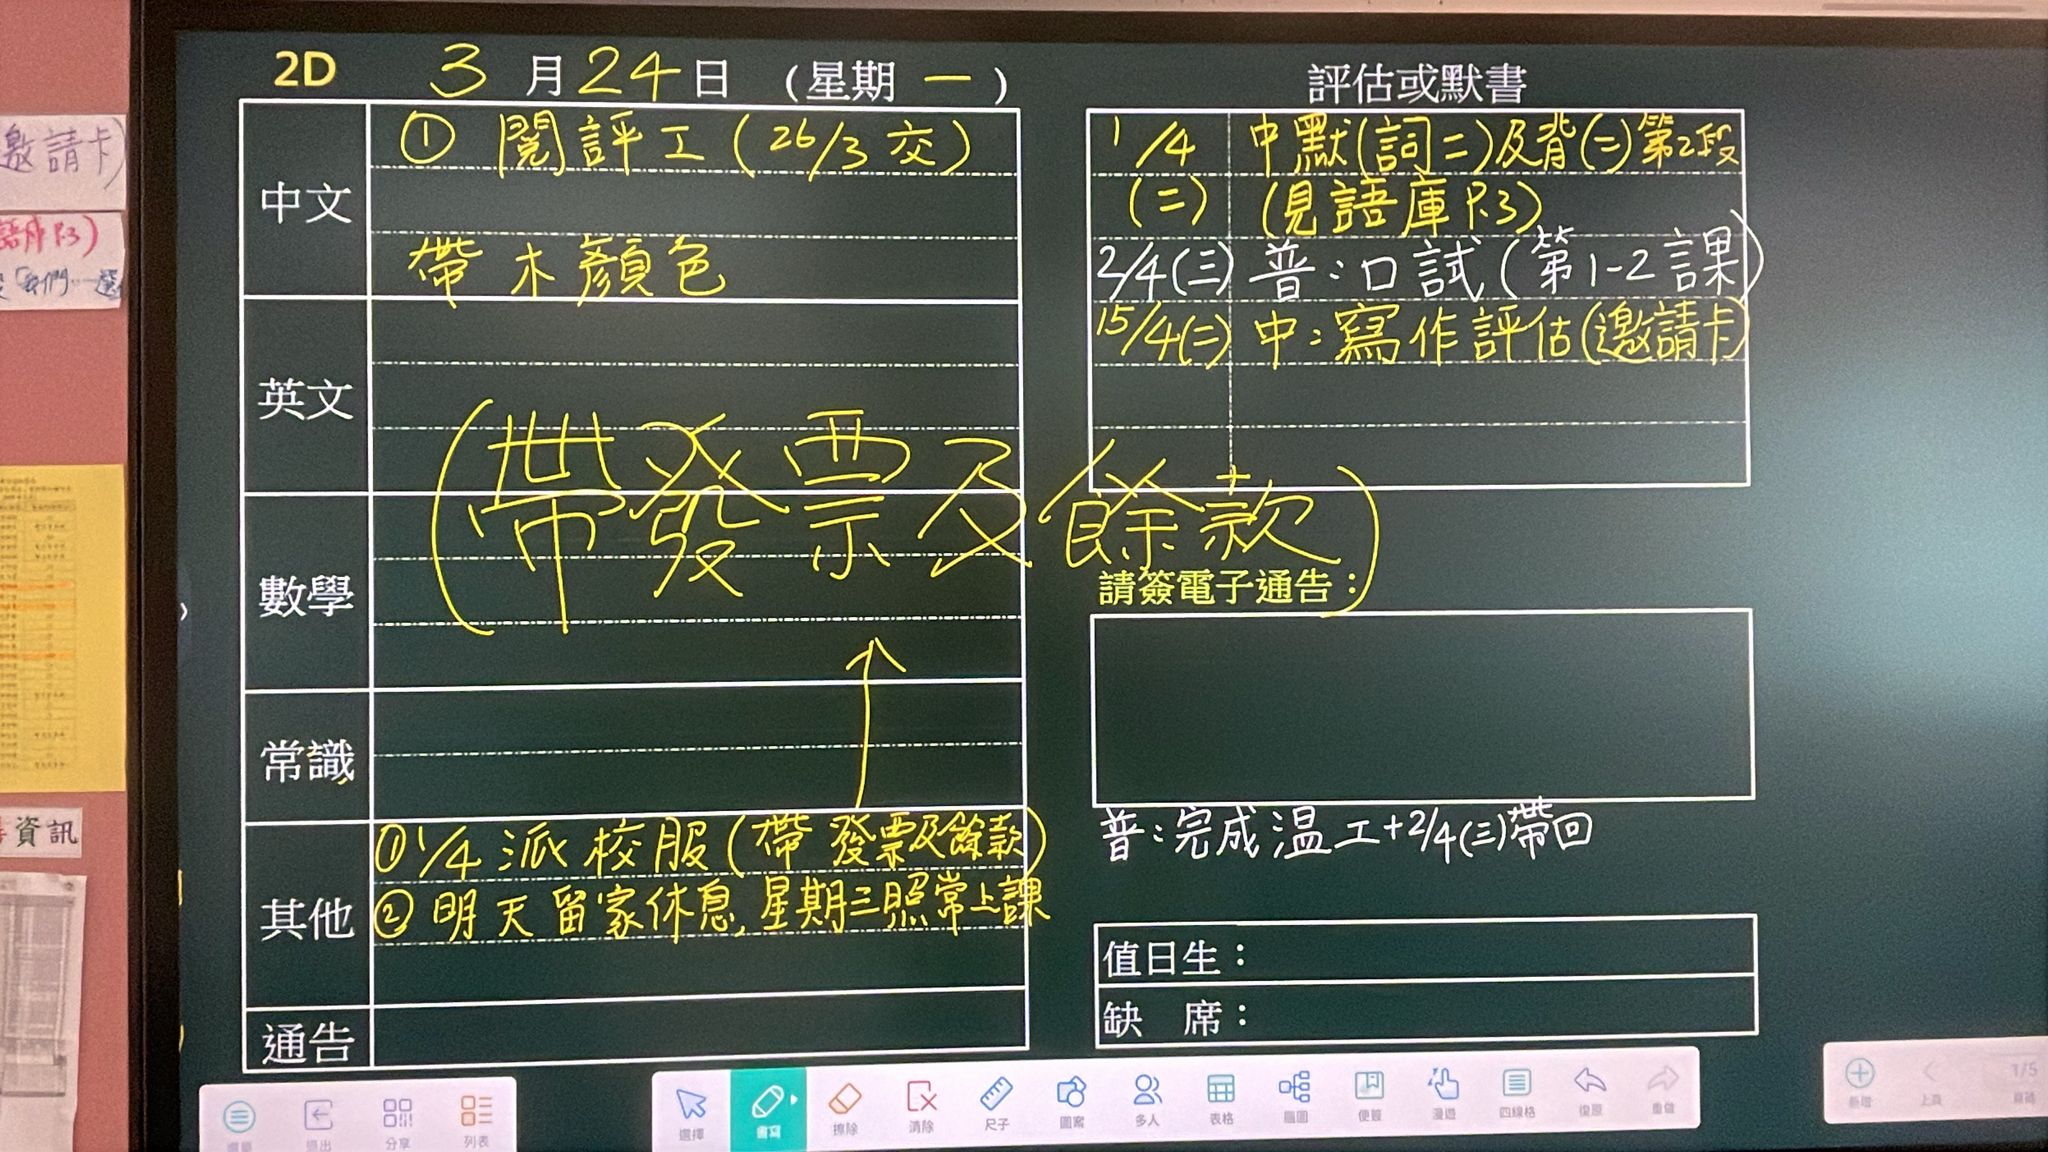 2D 3月24日 (星期一)
中文
① 閱評工(26/3交)
帶木顏色
英文
(帶發票及餘款)
數學
常識
其他
①1/4派校服(帶發票及餘款)
②明天留家休息,星期三照常上課
通告
評估或默書
1/4 中默(詞二)及背(二)第2段
(二) (見語庫P.3)
2/4(三) 普:口試(第1-2課)
15/4(二) 中:寫作評估(邀請卡)
請簽電子通告:
普:完成温工+2/4(三)帶回
值日生:
缺 席:
邀請卡)
語庫P.3)
資訊
選單 退出 分享 列表
選擇 書寫 擦除 清除 尺子 圖案 多人 表格 腦圖 便簽 漫遊 四線格 復原 重做
新增 上頁 1/5